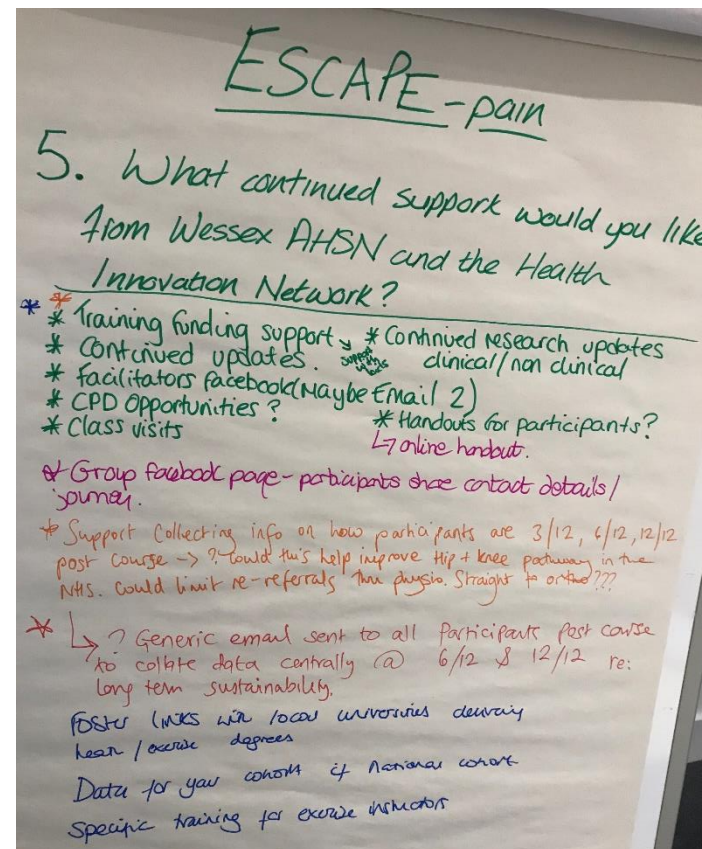 ESCAPE-pain
5. What continued support would you like
from Wessex AHSN and the Health
Innovation Network?
* * * Training funding support
* Continued updates.
* Facilitators facebook (Maybe Email 2)
* CPD Opportunities?
* Class visits
* Continued research updates
clinical/non clinical
* Handouts for participants?
↳ online handout.
* Group facebook page - participants share contact details/
journey.
* Support Collecting info on how participants are 3/12, 6/12, 12/12
post course -> ? Could this help improve Hip + knee pathway in the
NHS. Could limit re-referrals thru physio. Straight to ortho???
* ↳ ? Generic email sent to all Participants Post course
to collate data centrally @ 6/12 & 12/12 re:
long term sustainability.
Foster links with local universities delivering
/ exercise degrees
Data for your cohort if national cohort
Specific training for exercise instructors